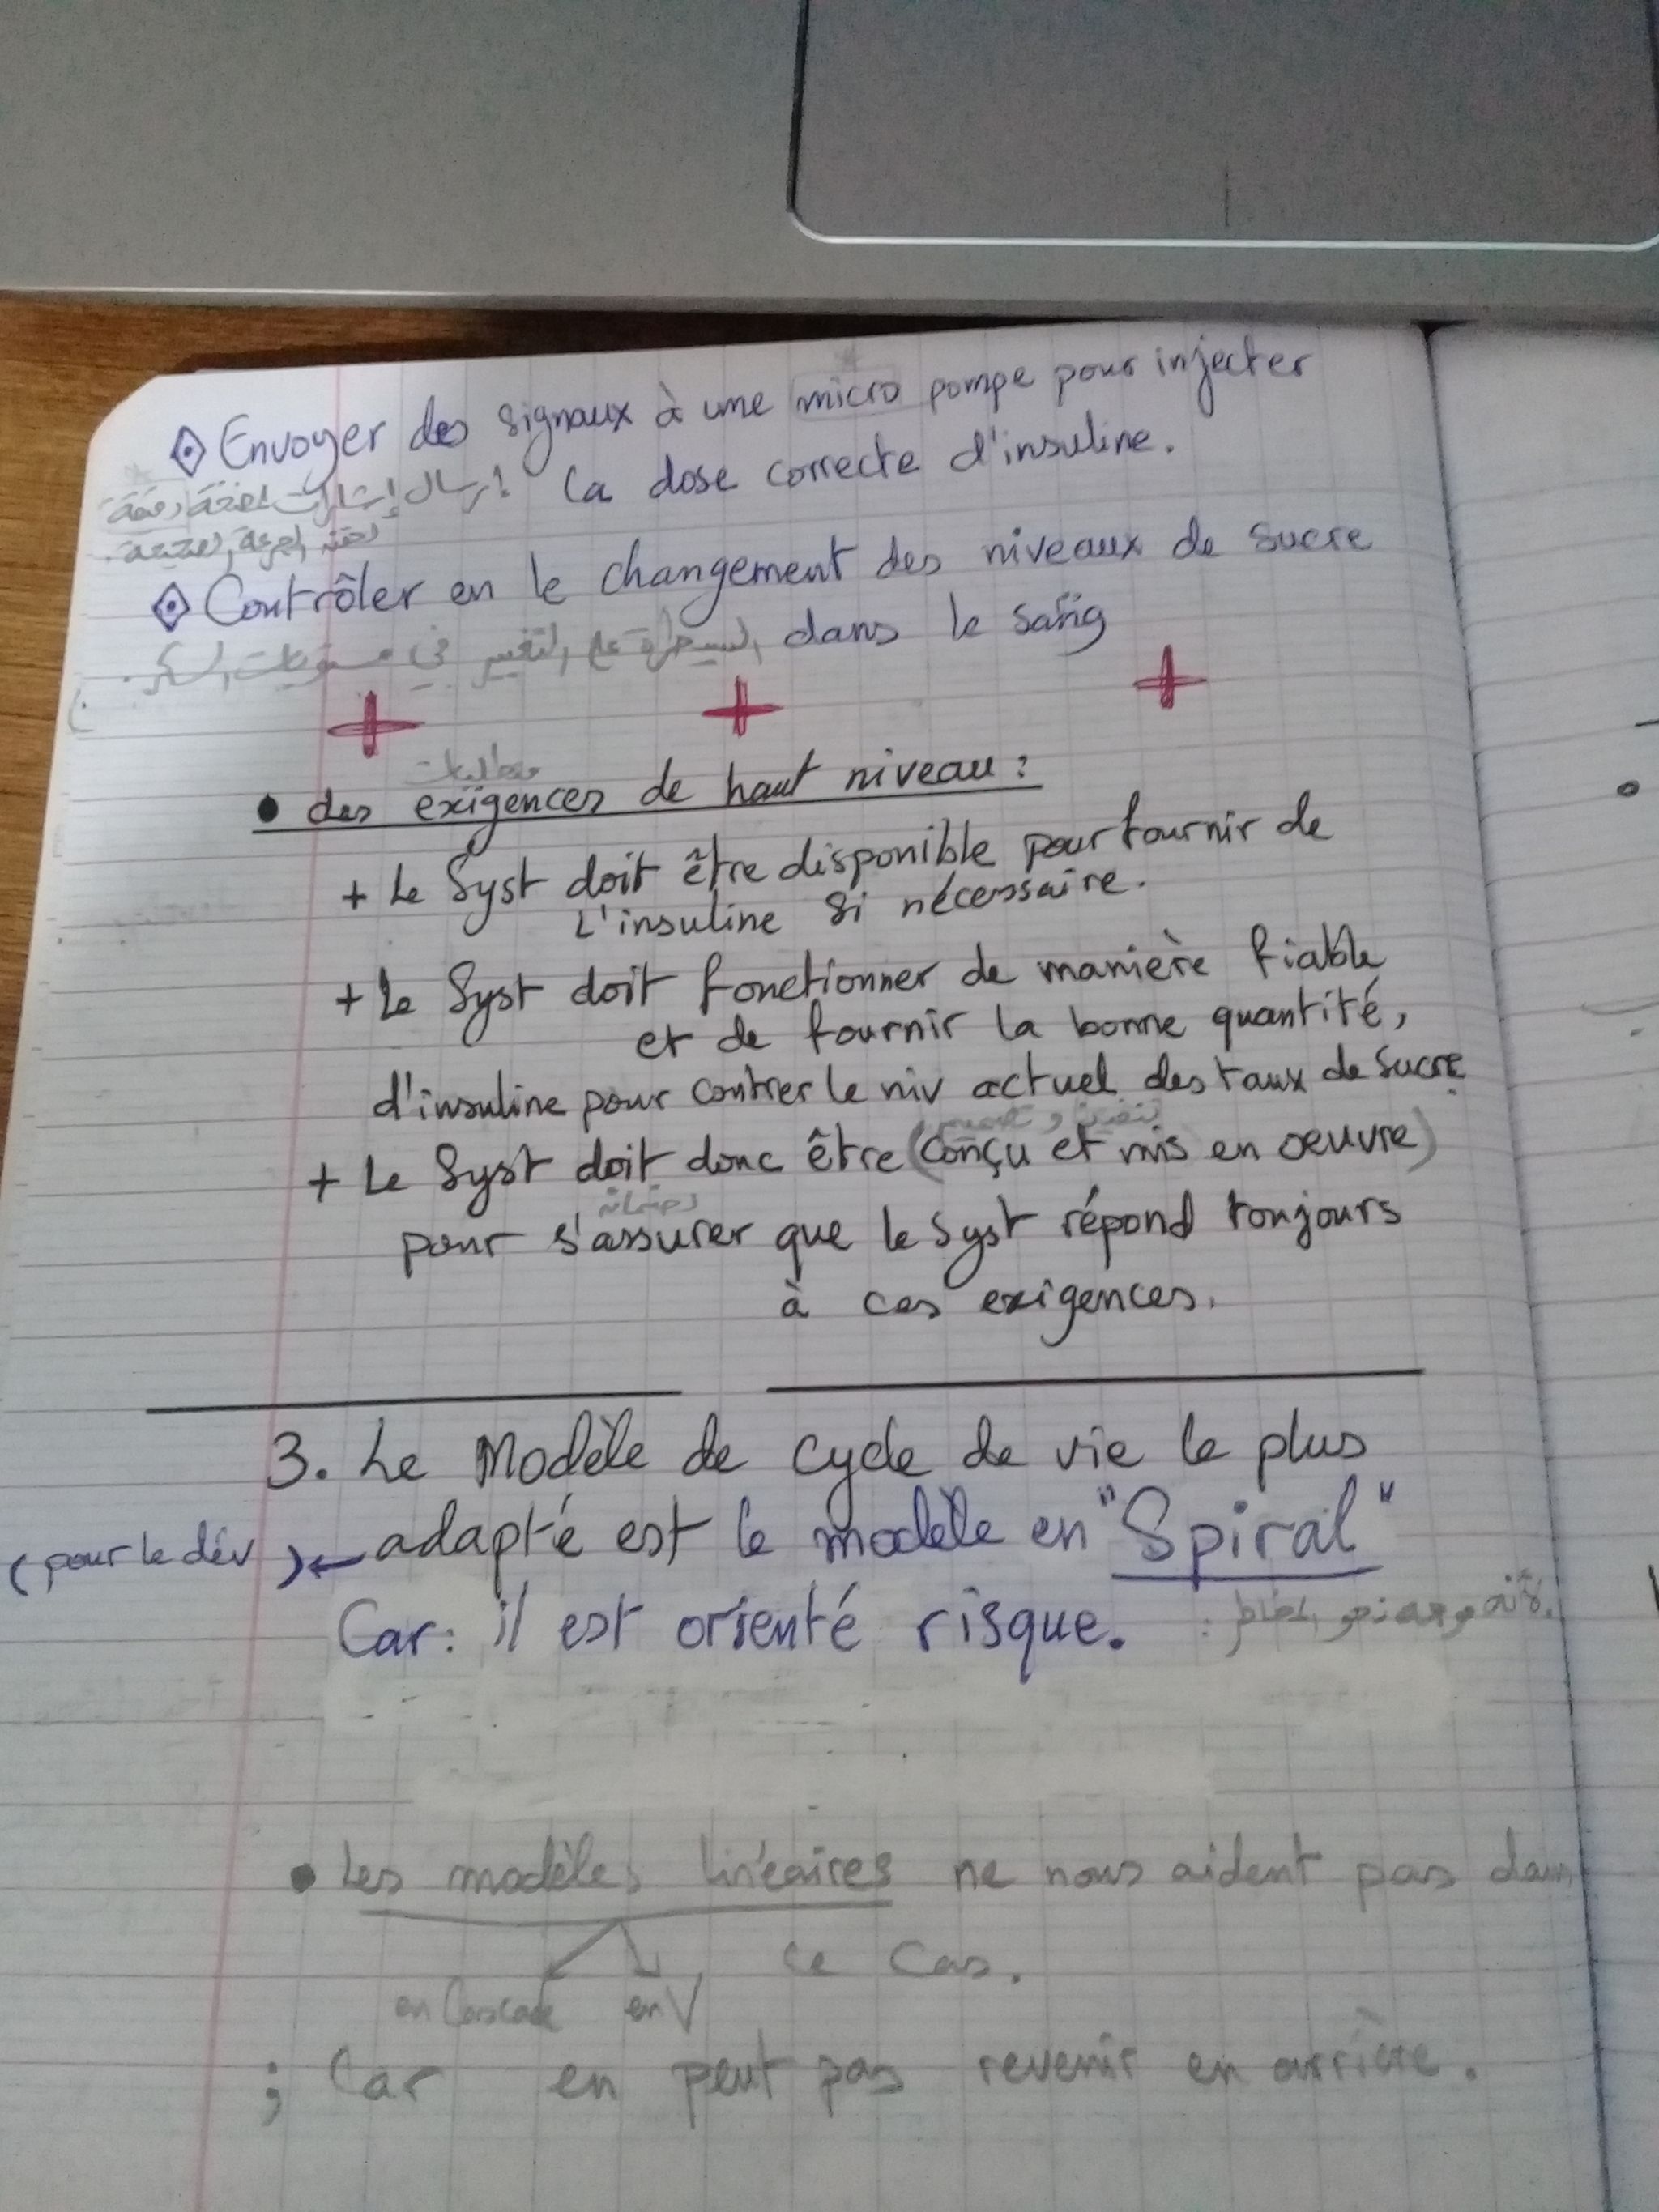 Envoyer des signaux à une micro pompe pour injecter
إرسال إشارات لمضخة دقيقة la dose correcte d'insuline.
لحقن الجرعة الصحيحة.
Contrôler en le changement des niveaux de sucre
السيطرة على التغيير في مستويات السكر. dans le sang
+ + +
• des exigences de haut niveau :
+ Le Syst doit être disponible pour fournir de
L'insuline si nécessaire.
+ Le Syst doit fonctionner de manière fiable
et de fournir la bonne quantité,
d'insuline pour contrer le niv actuel des taux de sucre.
تنفيذ و تصميم
+ Le Syst doit donc être (conçu et mis en oeuvre)
pour s'assurer que le Syst répond toujours
à ces exigences.
3. Le Modèle de cycle de vie le plus
(pour le dév) ← adapté est le modèle en "Spiral"
Car: il est orienté risque. لأنه موجه نحو المخاطر:
• Les modèles linéaires ne nous aident pas dan
ce cas.
en Cascade en V
; Car en peut pas revenir en arrière.